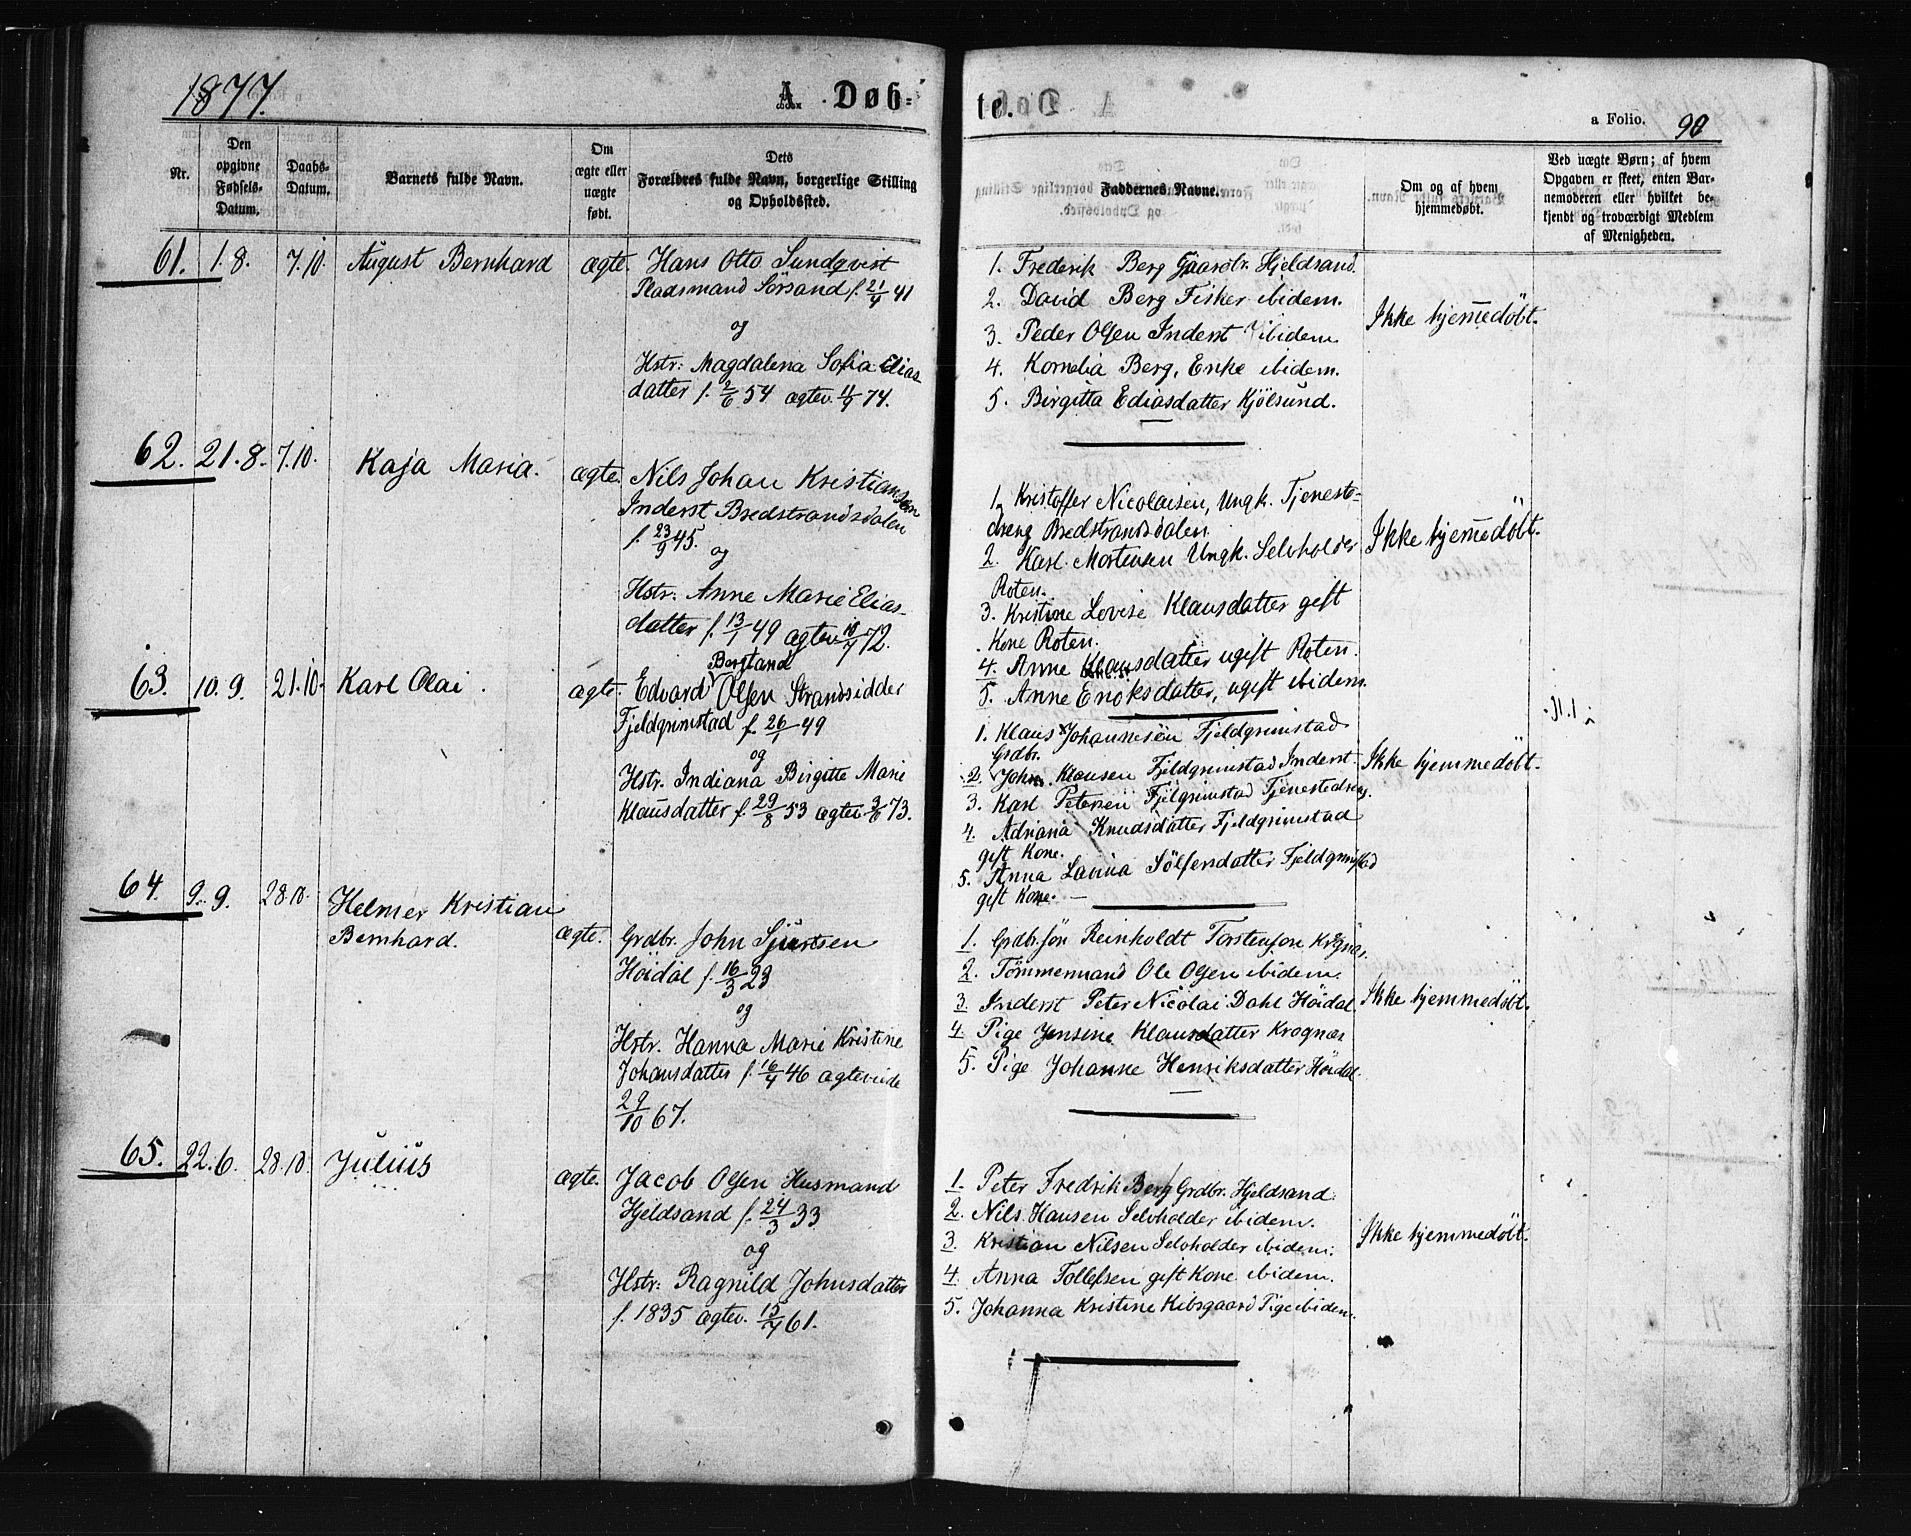 1877.
A. Døb=
te.
a Folio. 90
Nr.
Den opgivne Fødsels-Datum.
Daabs-Datum.
Barnets fulde Navn.
Om ægte eller uægte født.
Dets Forældres fulde Navn, borgerlige Stilling og Opholdssted.
Faddernes Navne.
Om og af hvem hjemmedøbt.
Ved uægte Børn; af hvem Opgaven er skeet, enten Barnemoderen eller hvilket bekjendt og troværdigt Medlem af Menigheden.
61. 1.8. 7.10. August Bernhard ægte. Hans Otto Sundqvist
Pladsmand Sörsand f. 21/4 41
og
Hstr: Magdalena Sofia Elias-
datter f. 2/6 54 ægtev. 11/9 74.
1. Frederik Berg Gaardbr. Hjeldsand.
2. David Berg Fisker ibidem.
3. Peder Olsen Inderst ibidem
4. Kornelia Berg, Enke ibidem.
5. Birgitta Ediasdatter Kjölsund.
Ikke hjemedöbt.
62. 21.8. 7.10. Kaja Maria. ægte. Nils Johan Kristiansen
Inderst Bredstrandsdalen
f. 23/9 45.
og
Hstr: Anne Marie Elias-
datter f. 13/1 49 ægtev. 10/7 72.
1. Kristoffer Nicolaisen, Ungk. Tjeneste-
dreng Bredstrandsdalen.
2. Karl Mortensen Ungk. Selvholder
Roten.
3. Kristine Lovise Klausdatter gift
Kone Roten.
4. Anne Klausdatter ugift Roten.
5. Anne Enoksdatter, ugift ibidem.
Ikke hjemedöbt.
63. 10.9. 21.10. Karl Olai. ægte. Edvard Olsen Strandsidder
Bergland
Fjeldgrimstad f. 26/1 49
og
Hstr. Indiana Birgitte Marie
Klausdatter f. 29/8 53 ægtev. 3/6 73.
1. Klaus Johannesen Fjeldgrimstad
Grdbr.
2. John Klausen Fjeldgrimstad Inderst
3. Karl Petersen Fjelgrimstad Tjenestedreng.
4. Adriana Knudsdatter Fjeldgrimstad
gift Kone.
5. Anna Lavina Sölfensdatter Fjeldgrimstad
gift Kone.
Ikke hjemmedöbt.
64. 9.9. 28.10. Helmer Kristian
Bernhard. ægte. Grdbr. John Sjursen
Höidal f. 16/3 23
og
Hstr. Hanna Marie Kristine
Johansdatter f. 16/4 46 ægteviede
29/10 67.
1. Grdbr.sön Reinholdt Torstensön Krognæs.
2. Tömmermand Ole Olsen ibidem.
3. Inderst Peter Nicolai Dahl Höidal.
4. Pige Jensine Klausdatter Krognæs
5. Pige Johanne Henriksdatter Höidal.
Ikke hjemmedöbt.
65. 22.6. 28.10. Julius ægte. Jacob Olsen Husmand
Hjeldsand f. 24/3 33
og
Hstr: Ragnild Johnsdatter
f. 1835 ægtev. 15/7 61.
1. Peter Fredrik Berg Grdbr. Hjeldsand.
2. Nils Hansen Selvholder ibidem.
3. Kristian Nilsen Selvholder ibidem.
4. Anna Tollefsen gift Kone ibidem.
5. Johanna Kristine Kibsgaard Pige ibidem.
Ikke hjemmedöbt.